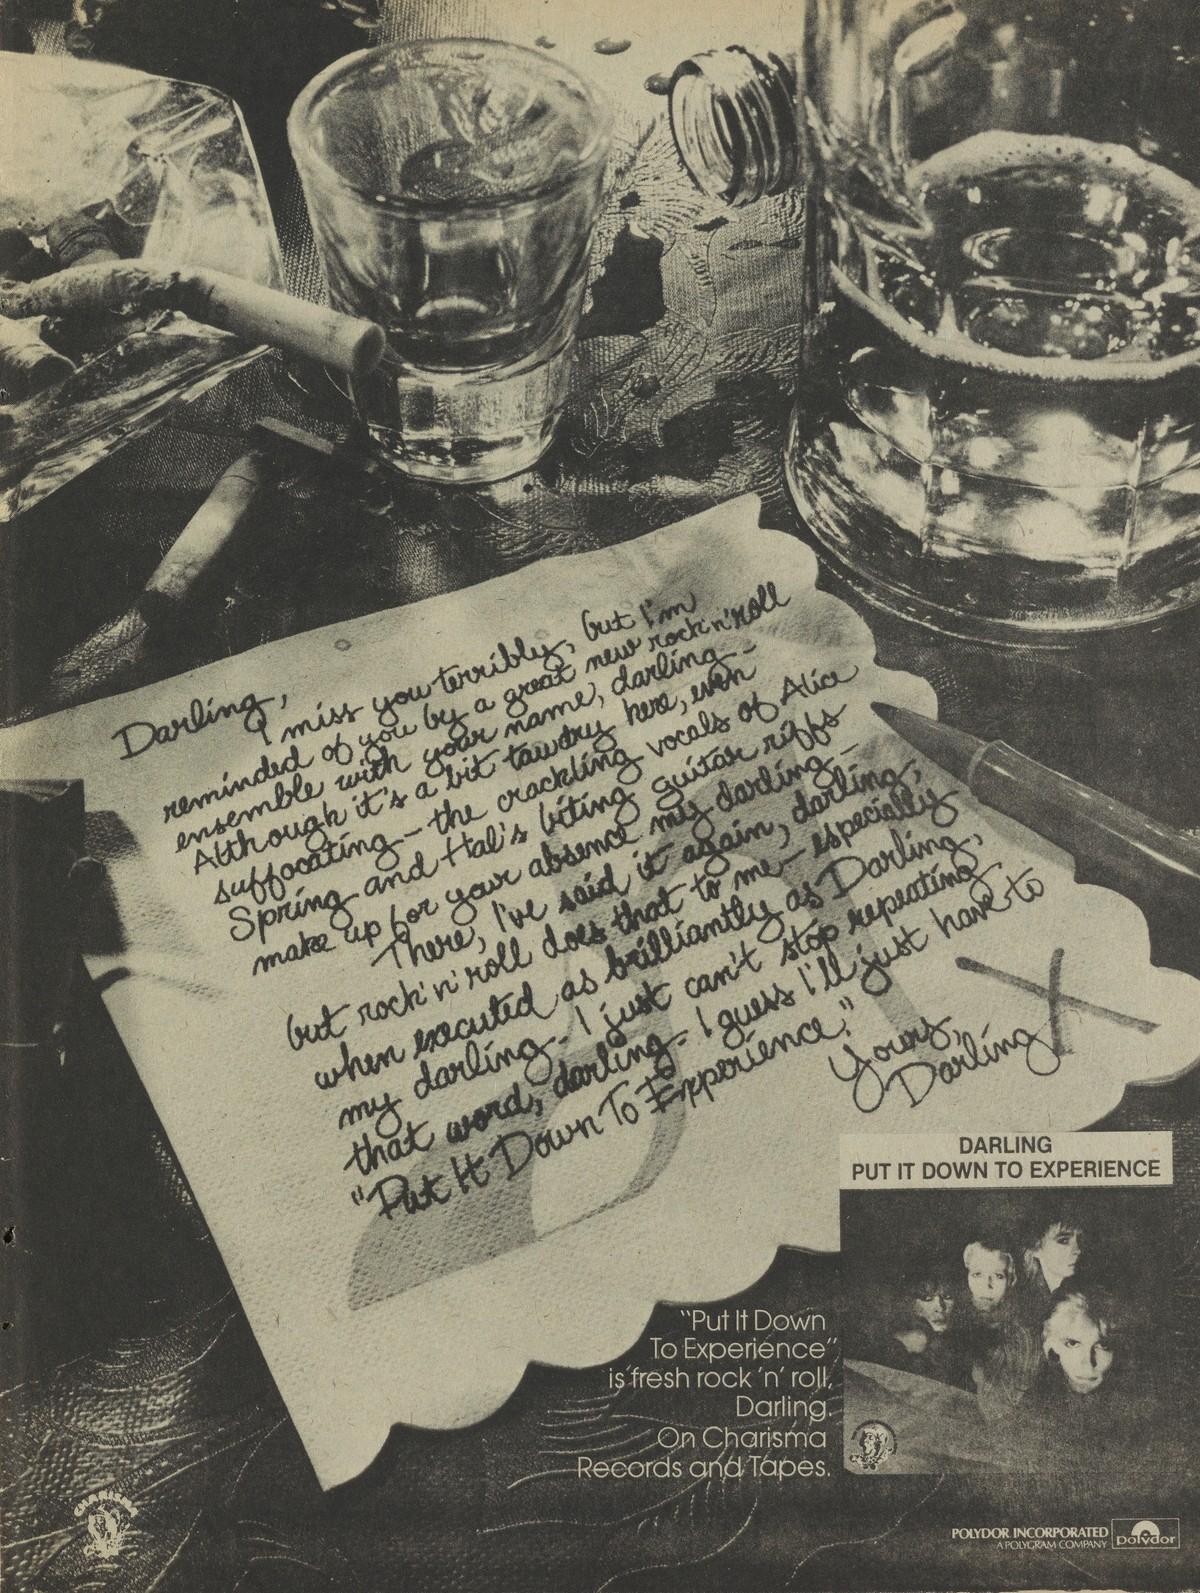 Darling,
I miss you terribly, but I'm
reminded of you by a great new rock'n'roll
ensemble with your name, darling -
Although it's a bit tawdry here, even
suffocating - the crackling vocals of Alice
Spring and Hal's biting guitar riffs
make up for your absence my darling -
There, I've said it again, darling,
but rock'n'roll does that to me - especially
when executed as brilliantly as Darling,
my darling - I just can't stop repeating
that word, darling - I guess I'll just have to
"Put It Down To Experience."
Yours,
Darling X
DARLING
PUT IT DOWN TO EXPERIENCE
"Put It Down
To Experience"
is fresh rock 'n' roll,
Darling.
On Charisma
Records and Tapes.
CHARISMA
POLYDOR INCORPORATED
A POLYGRAM COMPANY
polydor